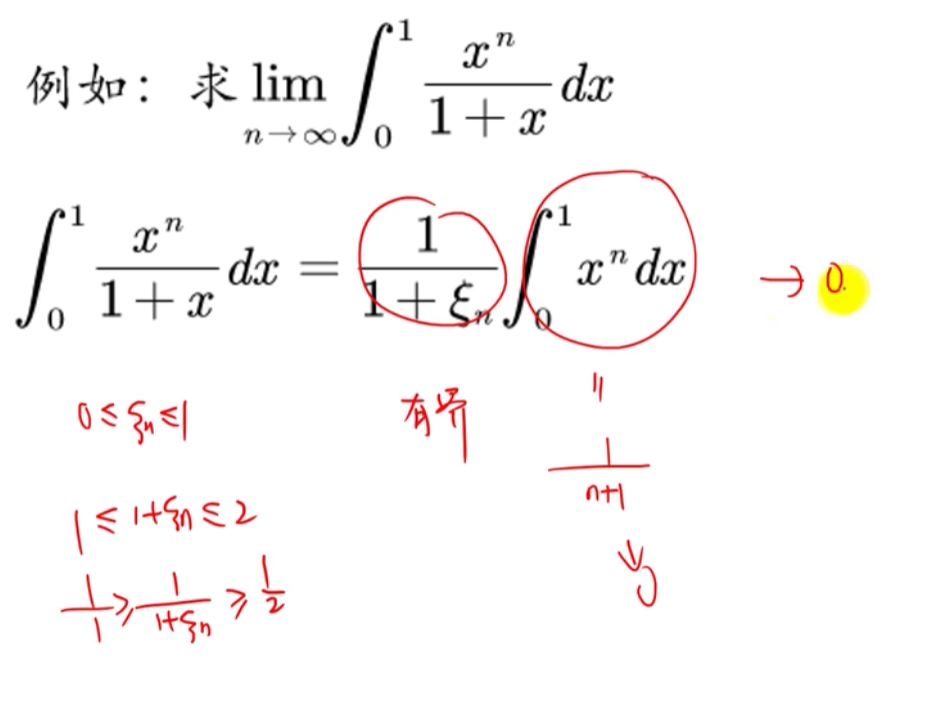 例如：求 lim_{n→∞} ∫_0^1 x^n/(1+x) dx
∫_0^1 x^n/(1+x) dx = 1/(1+ξ_n) ∫_0^1 x^n dx → 0.
0 ≤ ξ_n ≤ 1 有界 =
1/(n+1)
1 ≤ 1+ξ_n ≤ 2
↓
0
1/1 ≥ 1/(1+ξ_n) ≥ 1/2